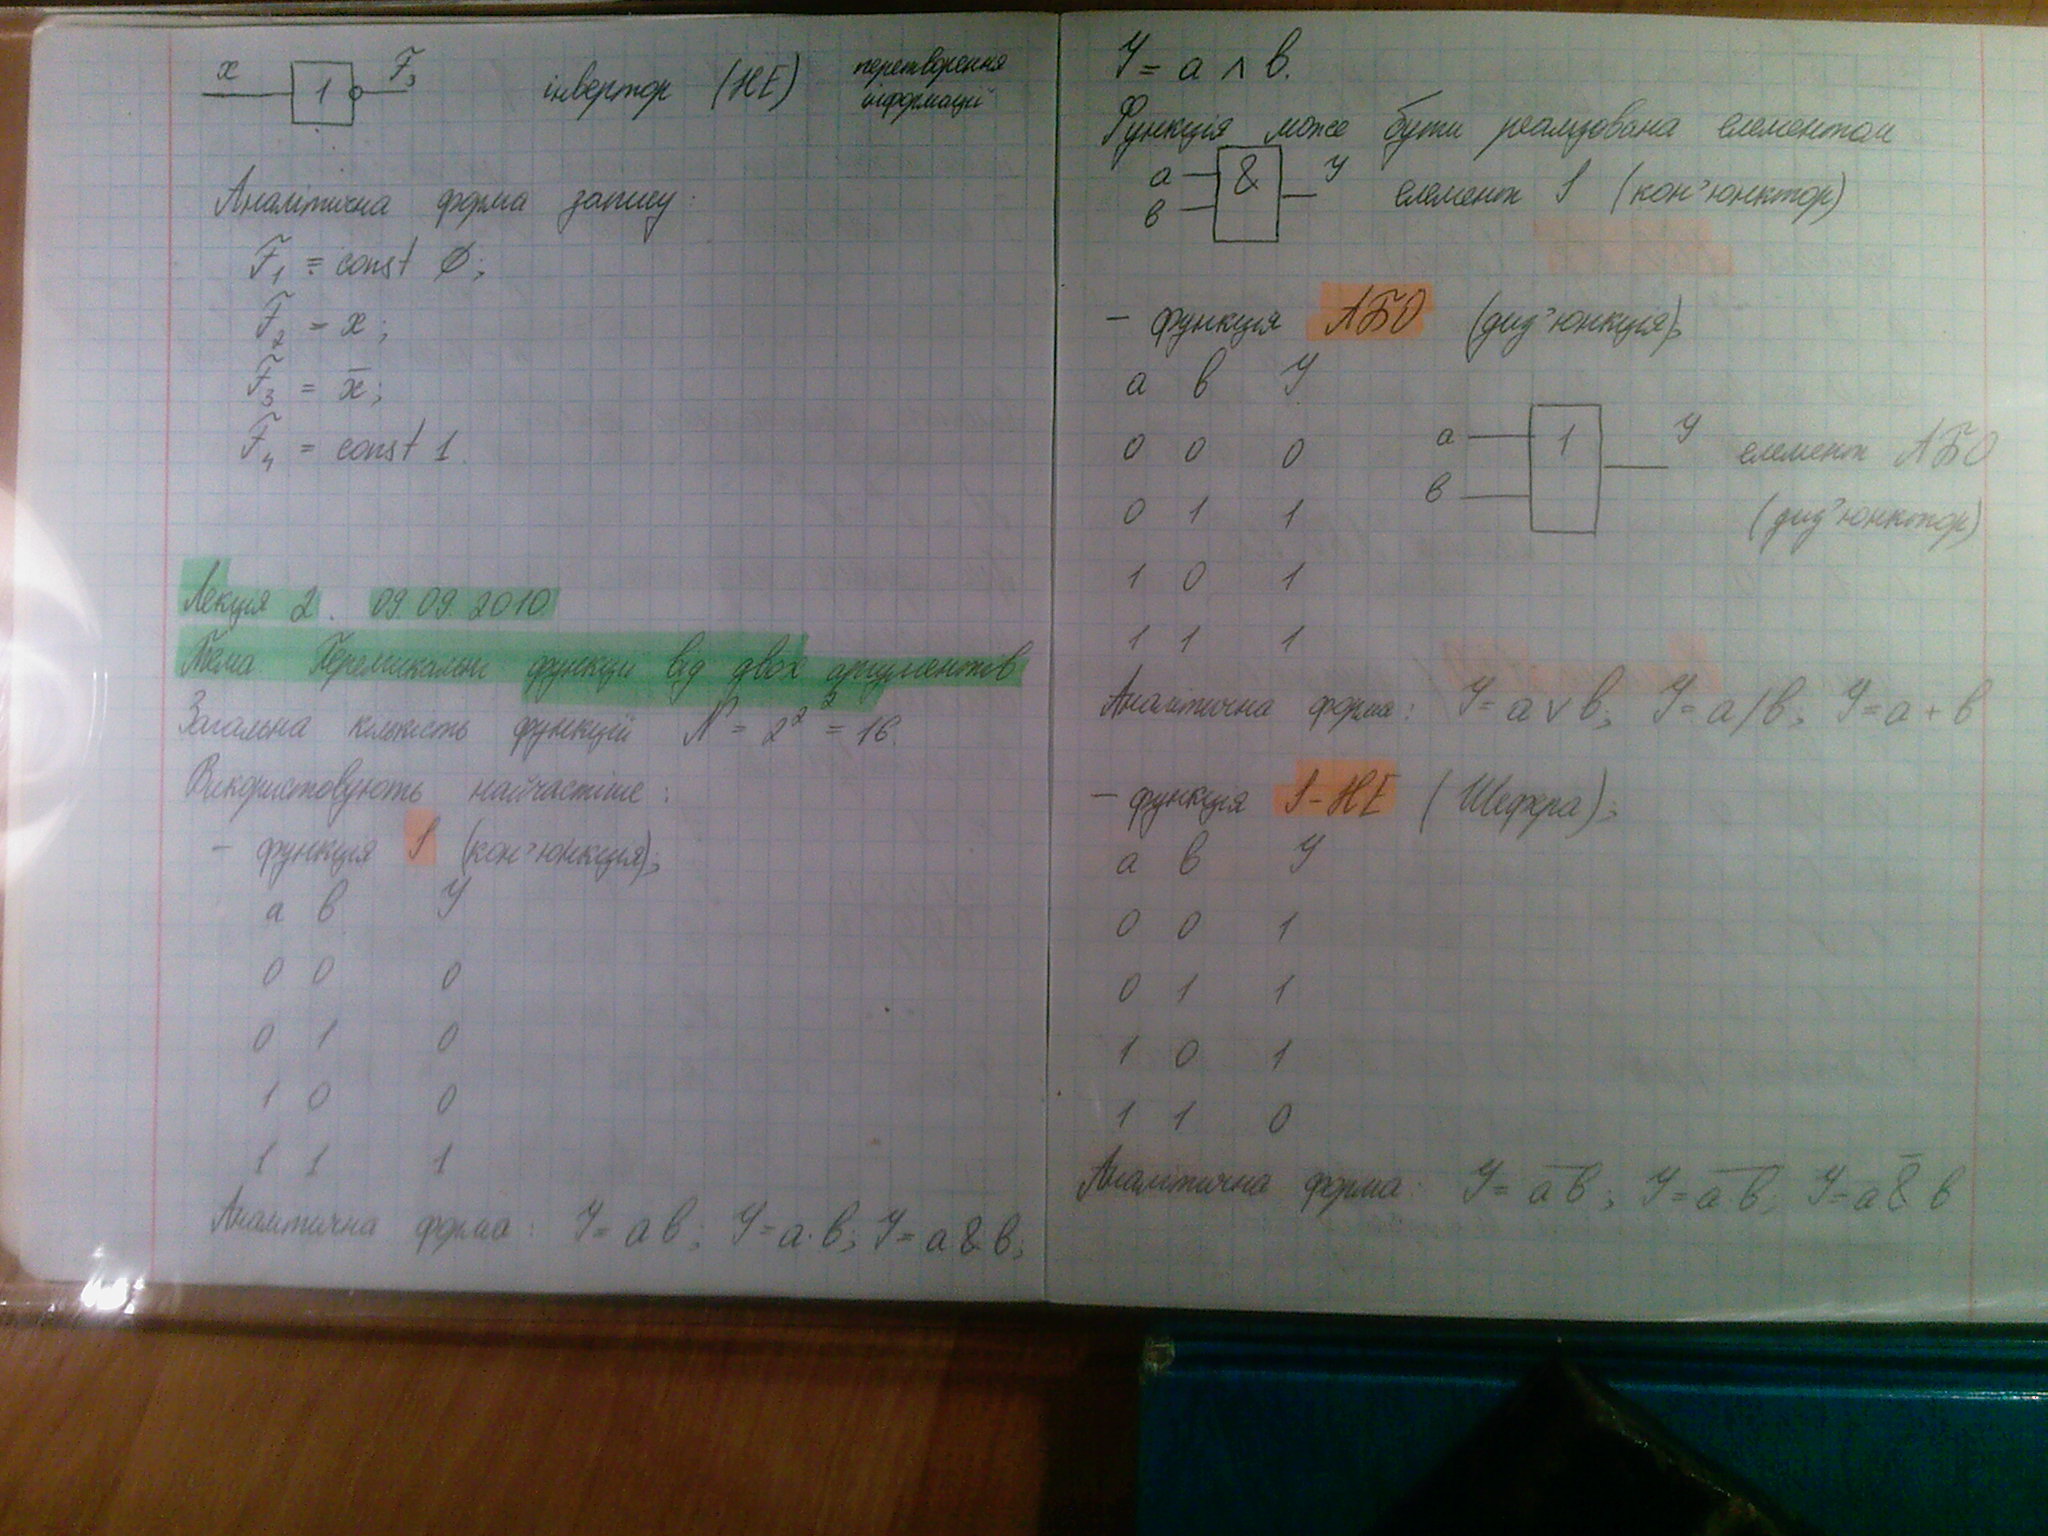 x 1 F3 інвертор (НЕ) перетворення
інформації
Аналітична форма запису:
F1 = const 0;
F2 = x;
F3 = x̅;
F4 = const 1.
Лекція 2. 09.09.2010
Тема Перемикальні функції від двох аргументів
Загальна кількість функцій N = 2^2^2 = 16.
Використовують найчастіше:
- функція І (кон'юнкція);
а в У
0 0 0
0 1 0
1 0 0
1 1 1
Аналітична форма: У = ав; У = а·в; У = а & в;
У = а ∧ в.
Функція може бути реалізована елементом
а & У елемент І (кон'юнктор)
в
- функція АБО (диз'юнкція);
а в У
0 0 0 а 1 У елемент АБО
0 1 1 в (диз'юнктор)
1 0 1
1 1 1
Аналітична форма: У = а v в; У = а / в; У = а + в
- функція І-НЕ (Шефера);
а в У
0 0 1
0 1 1
1 0 1
1 1 0
Аналітична форма: У = а̅в̅; У = а̅·̅в̅; У = а &̅ в